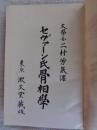 文學士二村芳風譯
セヴァーン氏骨相學
東京 淑文堂藏版